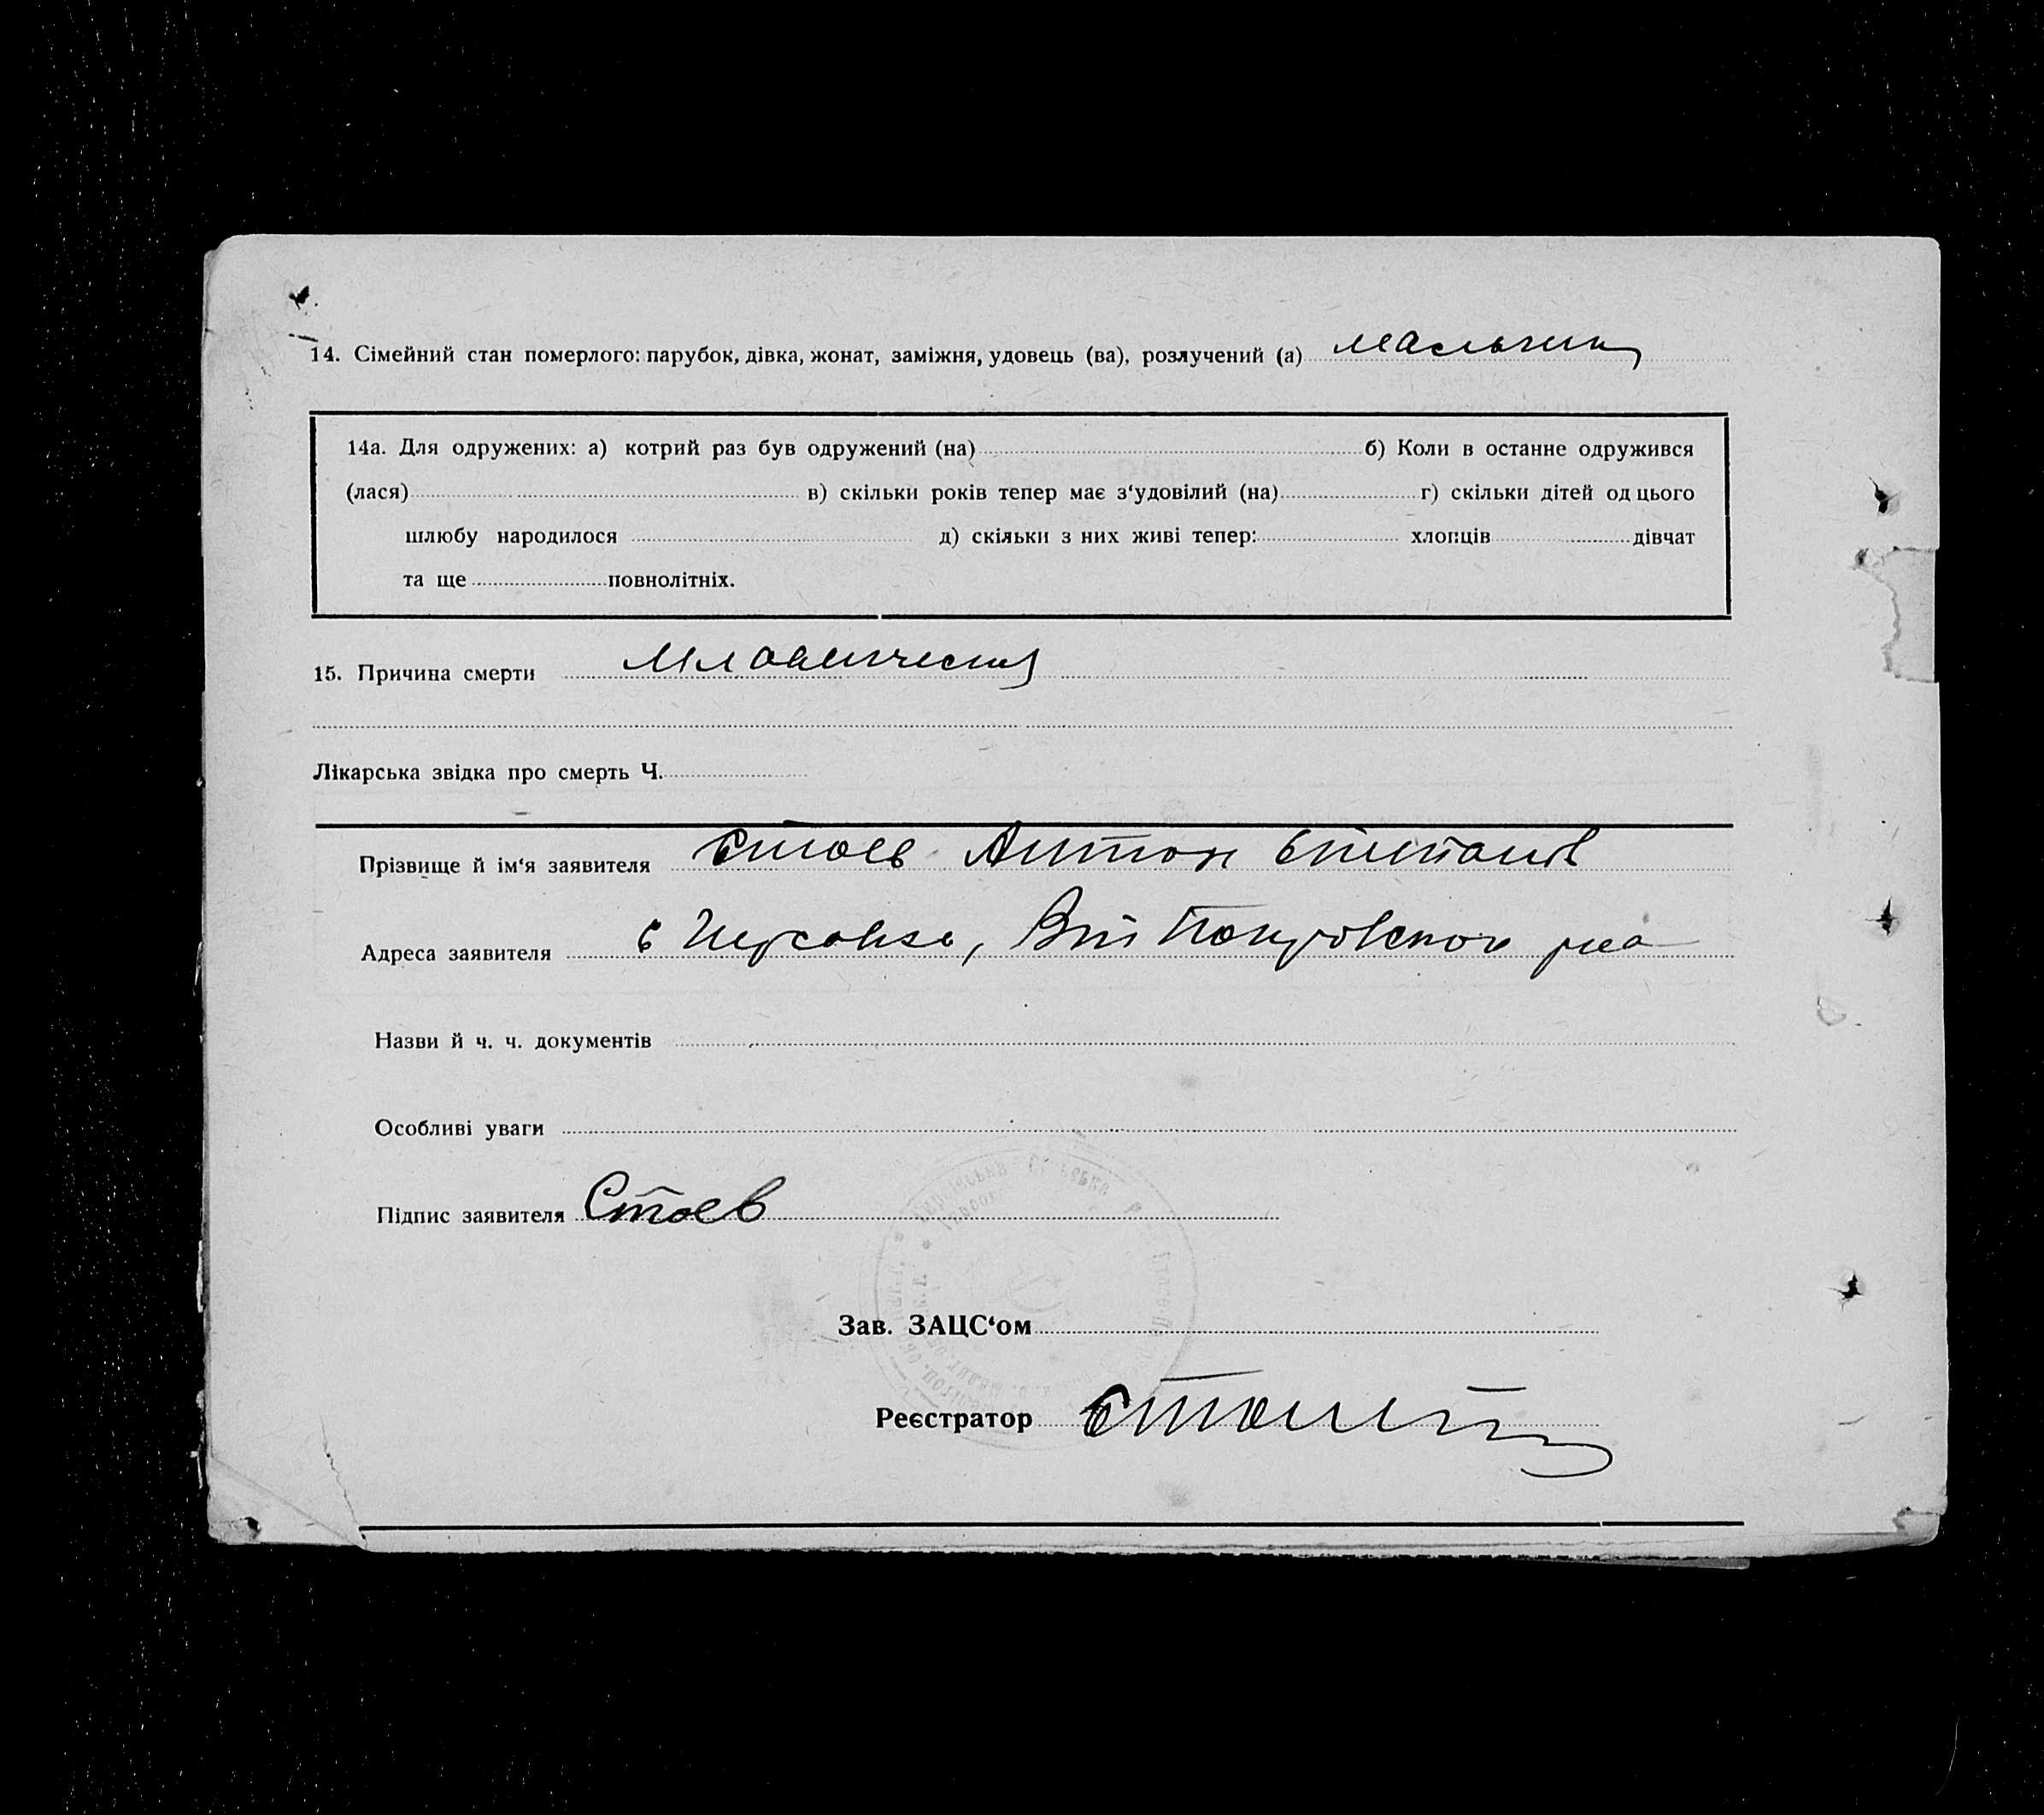 14. Сімейний стан померлого: парубок, дівка, жонат, заміжня, удовець (ва), розлучений (а) мальчик
14а. Для одружених: а) котрий раз був одружений (на) б) Коли в останне одружився
(лася) в) скільки років тепер має з‘удовілий (на) г) скільки дітей од цього
шлюбу народилося д) скільки з них живі тепер: хлопців дівчат
та ще повнолітніх.
15. Причина смерти Младенческая
Лікарська звідка про смерть Ч.
Прізвище й ім‘я заявителя Стоев Антон Степанов
Адреса заявителя с Цар Покровского
Назви й ч. ч. документів
Особливі уваги
Підпис заявителя Стоев
Зав. ЗАЦС‘ом
Реєстратор